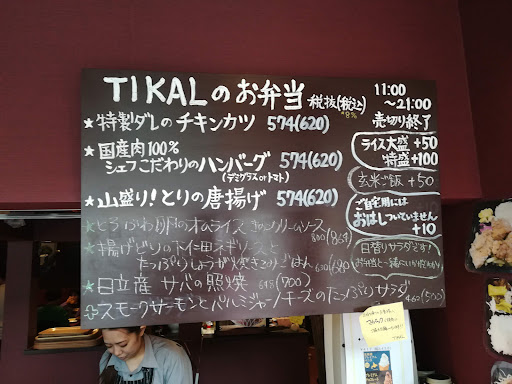 TIKALのお弁当 税抜(税込)
*8%
11:00
～21:00
売切り終了
★特製ダレのチキンカツ 574(620)
★国産肉100%
シェフこだわりのハンバーグ 574(620)
(デミグラスorトマト)
★山盛り!とりの唐揚げ 574(620)
ライス大盛 +50
特盛 +100
玄米ご飯 +50
ご自宅用には
おはしついていません
+10
★とろふわ卵のオムライス きのこクリームソース 800(864)
★揚げどりの下仁田ネギソースと
たっぷりしょうが炊きこみごはん
★日立産 サバの照焼 648(700)
スモークサーモンとパルミジャーノチーズのたっぷりサラダ 460(500)
日替りサラダです!
お弁当と一緒に